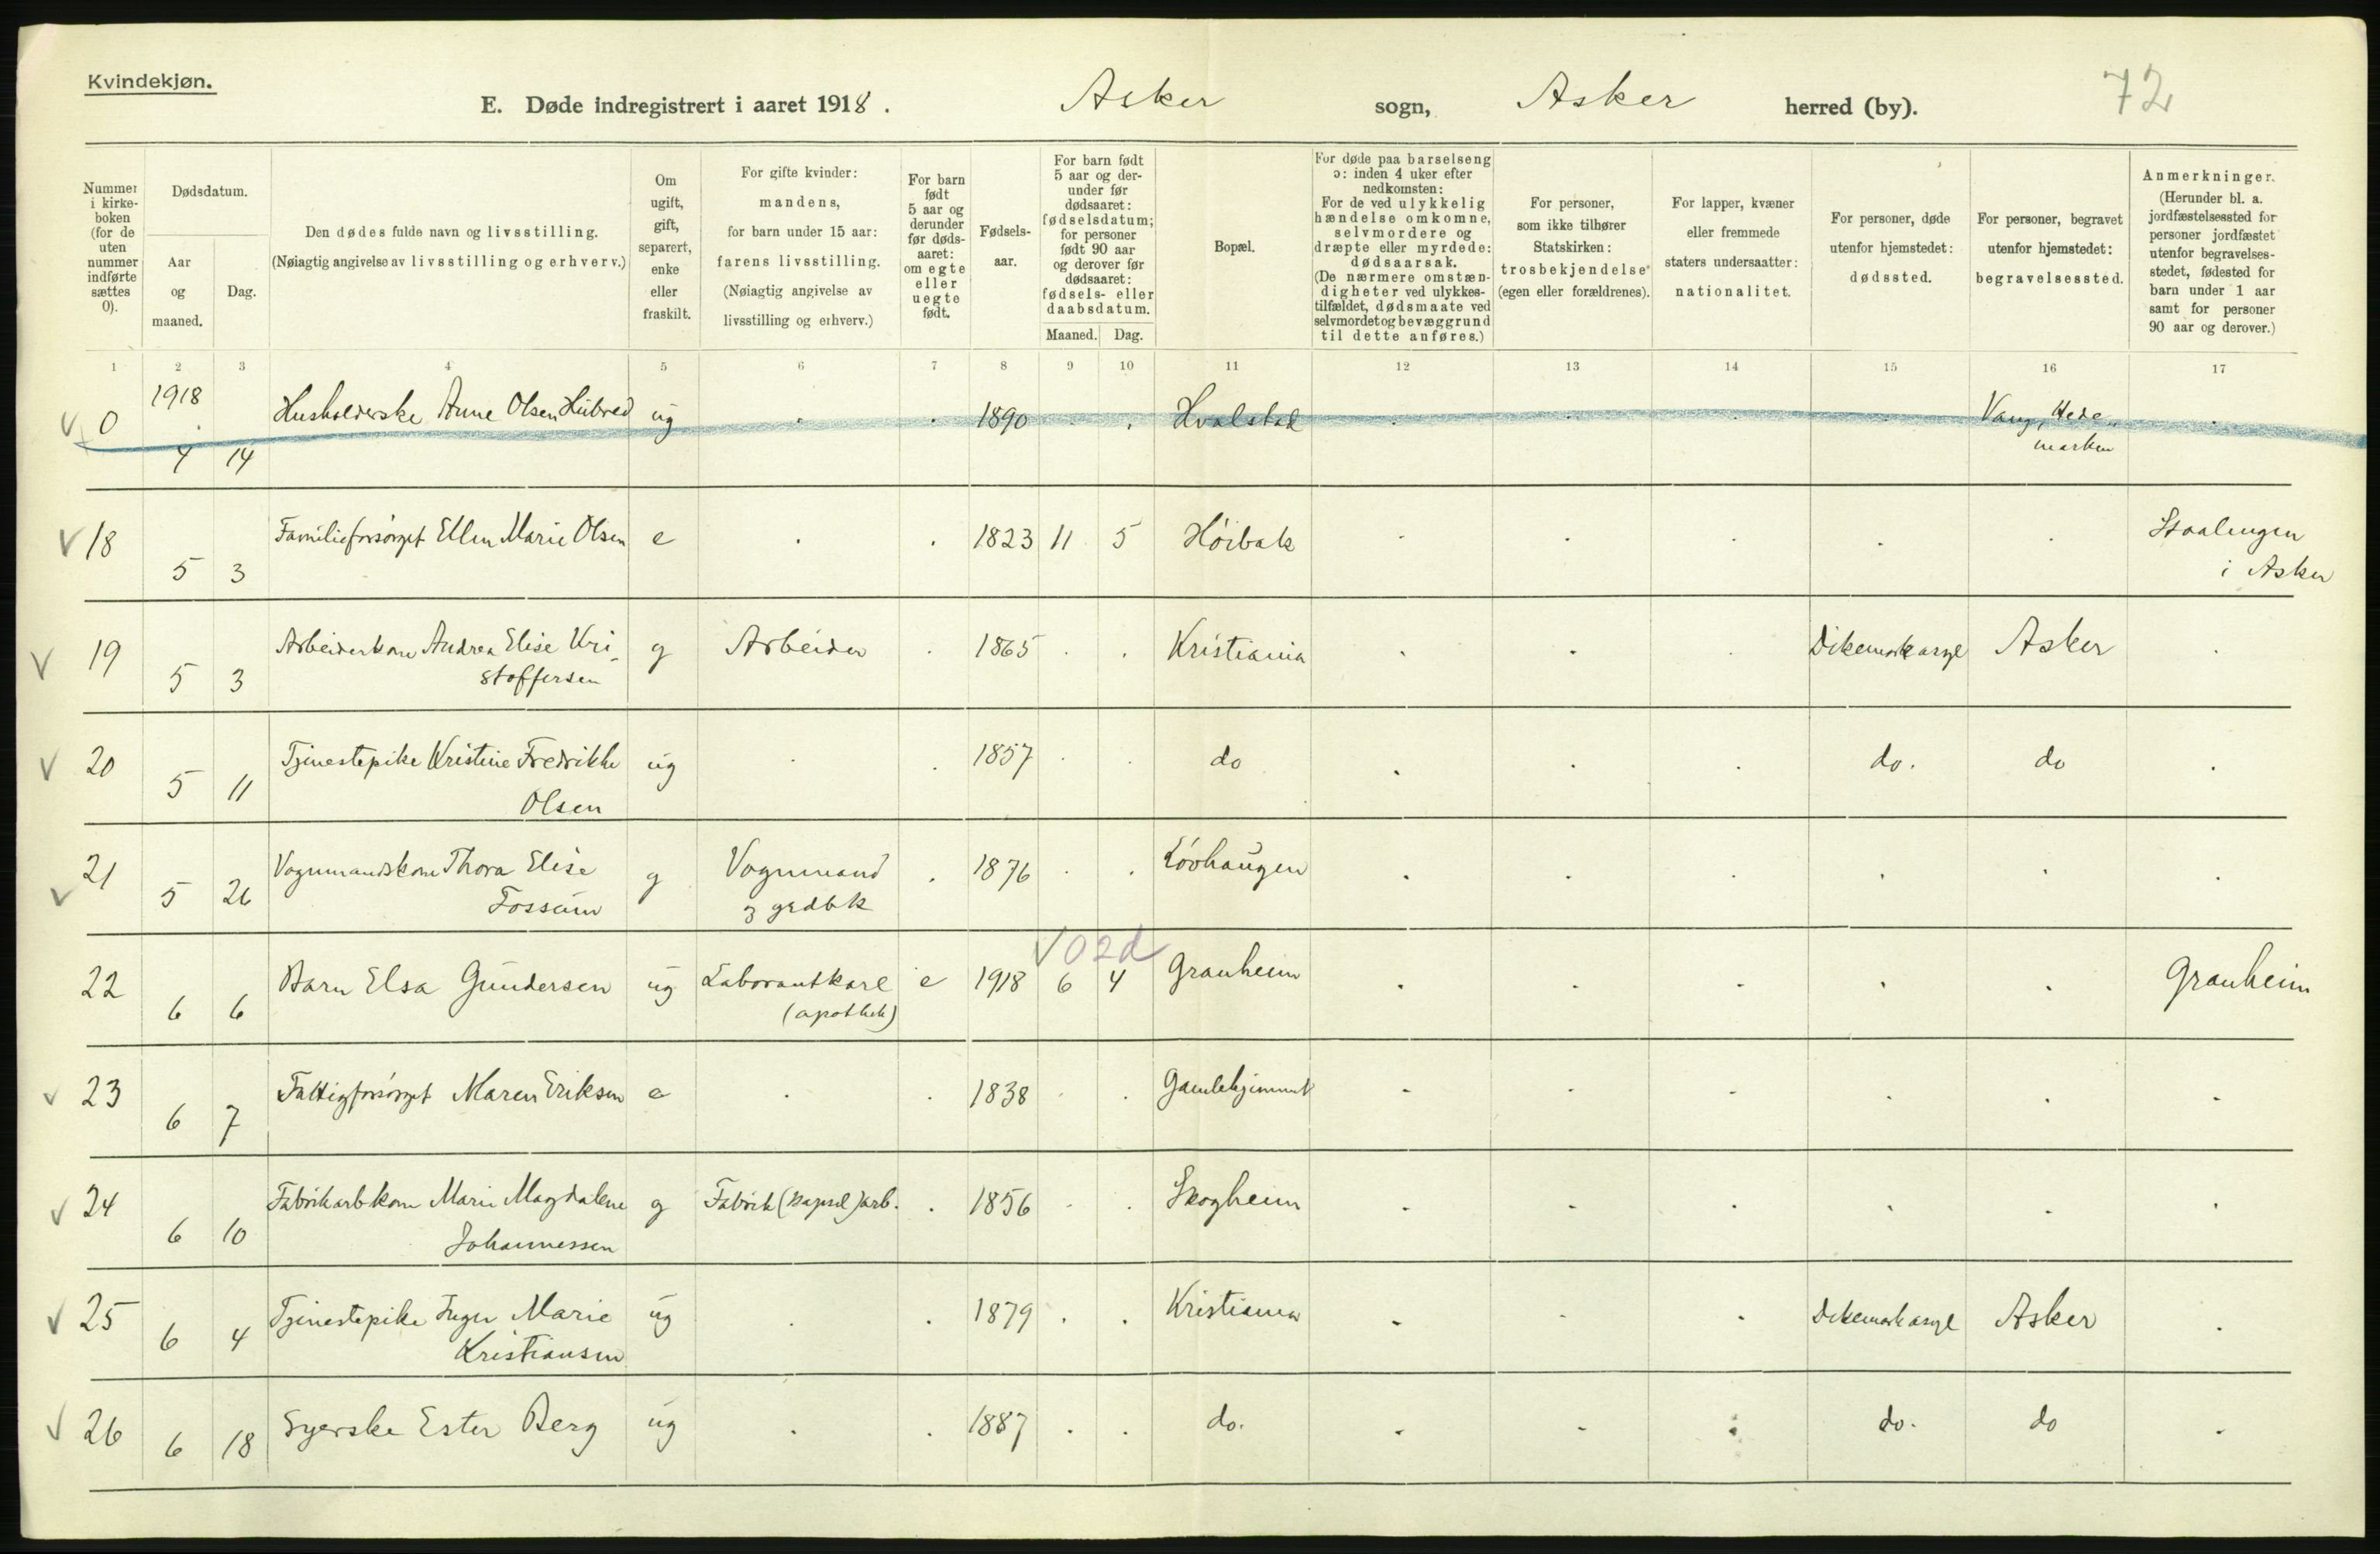 Kvindekjøn.
E. Døde indregistrert i aaret 1918. Asker sogn, Asker herred (by). 72
Nummer i kirkeboken (for de uten nummer indførte sættes 0).
Dødsdatum.
Aar og maaned.
Dag.
Den dødes fulde navn og livsstilling.
(Nøiagtig angivelse av livsstilling og erhverv.)
Om ugift, gift, separert, enke eller fraskilt.
For gifte kvinder: mandens, for barn under 15 aar: farens livsstilling. (Nøiagtig angivelse av livsstilling og erhverv.)
For barn født 5 aar og derunder før dødsaaret: om egte eller uegte født.
Fødselsaar.
For barn født 5 aar og derunder før dødsaaret: fødselsdatum; for personer født 90 aar og derover før dødsaaret: fødsels- eller daabsdatum.
Maaned. Dag.
Bopæl.
For døde paa barselseng ɔ: inden 4 uker efter nedkomsten: For de ved ulykkelig hændelse omkomne, selvmordere og dræpte eller myrdede: dødsaarsak. (De nærmere omstændigheter ved ulykkestilfældet, dødsmaate ved selvmordet og bevæggrund til dette anføres.)
For personer, som ikke tilhører Statskirken: trosbekjendelse (egen eller forældrenes).
For lapper, kvæner eller fremmede staters undersaatter: nationalitet.
For personer, døde utenfor hjemstedet: dødssted.
For personer, begravet utenfor hjemstedet: begravelsessted.
Anmerkninger. (Herunder bl. a. jordfæstelsessted for personer jordfæstet utenfor begravelsesstedet, fødested for barn under 1 aar samt for personer 90 aar og derover.)
1 2 3 4 5 6 7 8 9 10 11 12 13 14 15 16 17
V 0 1918 4 14 Husholderske Anne Olsen Hubred ug . . 1890 . . Hvalstad . . . . Vang, Hedemarken .
V 18 5 3 Familieforsørget Ellen Marie Olsen e . . 1823 11 5 Høibak . . . . . Staalengen
i Asker
V 19 5 3 Arbeiderkone Andrea Elise Kri-
stoffersen g Arbeider . 1865 . . Kristiania . . . Dikemark asyl Asker .
V 20 5 11 Tjenestepike Kristine Fredrikke
Olsen ug . . 1857 . . do . . . do. do .
V 21 5 26 Vognmandskone Thora Elise
Fossum g Vognmand
og grdbk . 1876 . . Løvhaugen . . . . . .
V 02d
22 6 6 Barn Elsa Gundersen ug Laborantkarl
(apothek) e 1918 6 4 Granheim . . . . . Granheim
V 23 6 7 Fattigforsørget Maren Eriksen e . . 1838 . . Gamlehjemmet . . . . . .
V 24 6 10 Fabrikarbkone Marie Magdalene
Johannessen g Fabrik (kapsel) arb. . 1856 . . Skogheim . . . . . .
V 25 6 4 Tjenestepike Inger Marie
Kristiansen ug . . 1879 . . Kristiania . . . Dikemark asyl Asker .
V 26 6 18 Syerske Ester Berg ug . . 1887 . . do. . . . do. do .